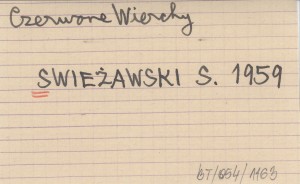 Czerwone Wierchy
SWIEŻAWSKI S. 1959
6T/054/1163